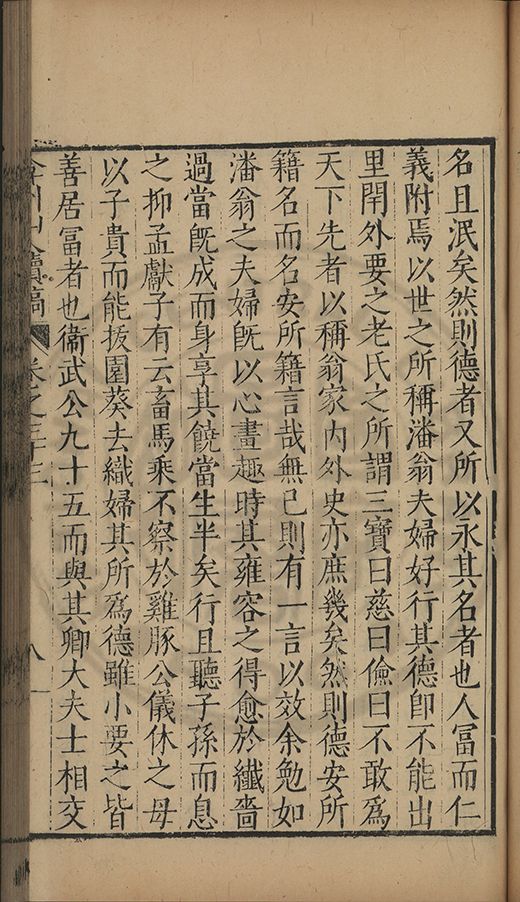 名且泯矣然則德者又所以永其名者也人冨而仁
義附焉以世之所稱潘翁夫婦好行其德卽不能出
里閈外要之老氏之所謂三寶曰慈曰儉曰不敢爲
天下先者以稱翁家內外史亦庶幾矣然則德安所
籍名而名安所籍言哉無已則有一言以效余勉如
潘翁之夫婦旣以心畫趣時其雍容之得愈於纖嗇
過當旣成而身享其饒當生半矣行且聽子孫而息
之抑孟獻子有云畜馬乘不察於雞豚公儀休之母
以子貴而能拔園葵去織婦其所爲德雖小要之皆
善居冨者也衞武公九十五而與其卿大夫士相交
續稿 卷之三十三 八